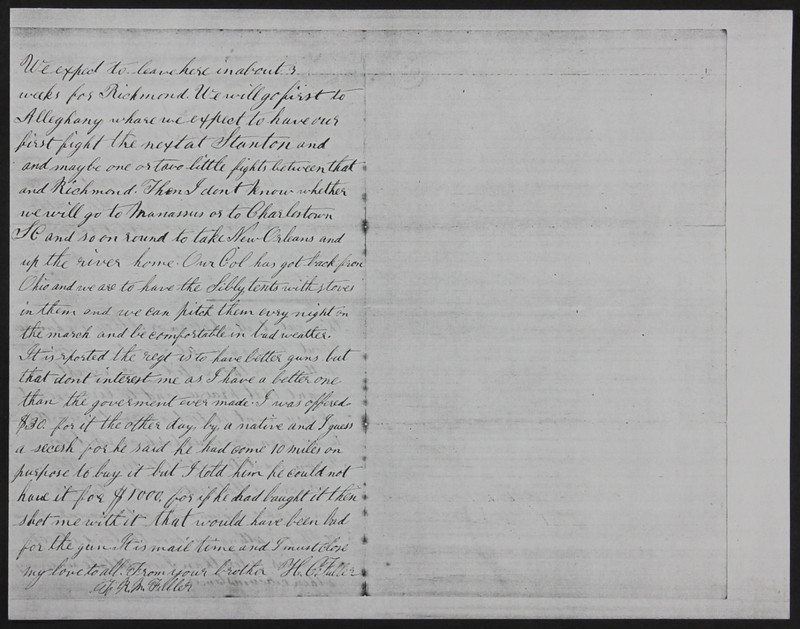 We expect to leave here in about 3
weeks for Richmond. We will go first to
Alleghany whare we expect to have our
first fight the next at Stanton and
and maybe one or two little fights between that
and Richmond. Then I dont know whether
we will go to Manassus or to Charlestown
SC and so on round to take New Orleans and
up the river home. Our Col has got back from
Ohio and we are to have the Sibly tents with stoves
in them and we can pitch them evry night on
the march and be comfortable in bad weather.
It is rported the regt is to have better guns but
that dont interest me as I have a better one
than the goverment ever made. I was offered
$30. for it the other day by a native and I guess
a secesh for he said he had come 10 miles on
purpose to buy it but I told him he could not
have it for $1000, for if he had baught it then
shot me with it that would have been bad
for the gun. It is mail time and I must close
my love to all. From your brother H. C. Fuller
To R. M. Fuller